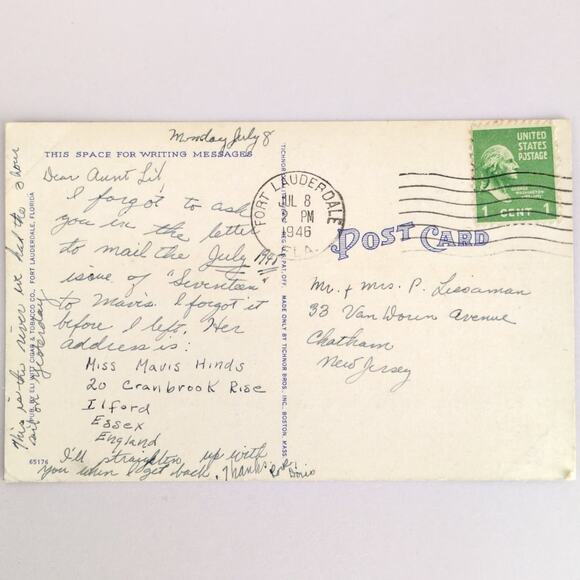 Monday July 8
THIS SPACE FOR WRITING MESSAGES
Dear Aunt Lil,
I forgot to ask
you in the letter
to mail the July
issue of "Seventeen"
to Mavis. I forgot it
before I left. Her
address is:
Miss Mavis Hinds
20 Cranbrook Rise
Ilford
Essex
England
I'll straighten up with
you when I get back. Thanks. Doris
This is the river we had the 2 hour
sail on yesterday
PUB. BY ELI WITT CIGAR & TOBACCO CO., FORT LAUDERDALE, FLORIDA
65176
MADE ONLY BY TICHNOR BROS., INC., BOSTON, MASS.
FORT LAUDERDALE
JUL 8
PM
1946
FLA.
UNITED
STATES
POSTAGE
GEORGE
WASHINGTON
1 CENT 1
POST CARD
Mr. & Mrs. P. Lissaman
33 Van Doren Avenue
Chatham
New Jersey